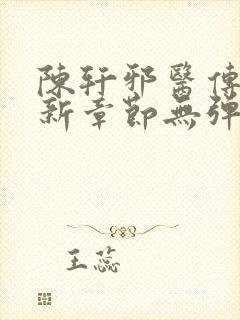 陳軒邪醫傳
新章節無彈
王蕊